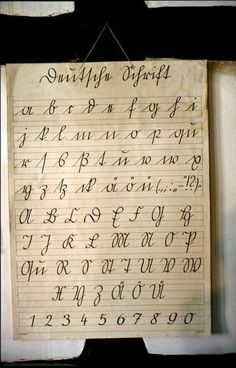 Deutsche Schrift
a b c d e f g h i
j k l m n o p qu
r s ſ ß t u v w x
y z tz ck ä ö ü (.,;:„–"!?).
A B C D E F G H
I J K L M N O P
Qu R S St T U V W
X Y Z Ä Ö Ü
1 2 3 4 5 6 7 8 9 0